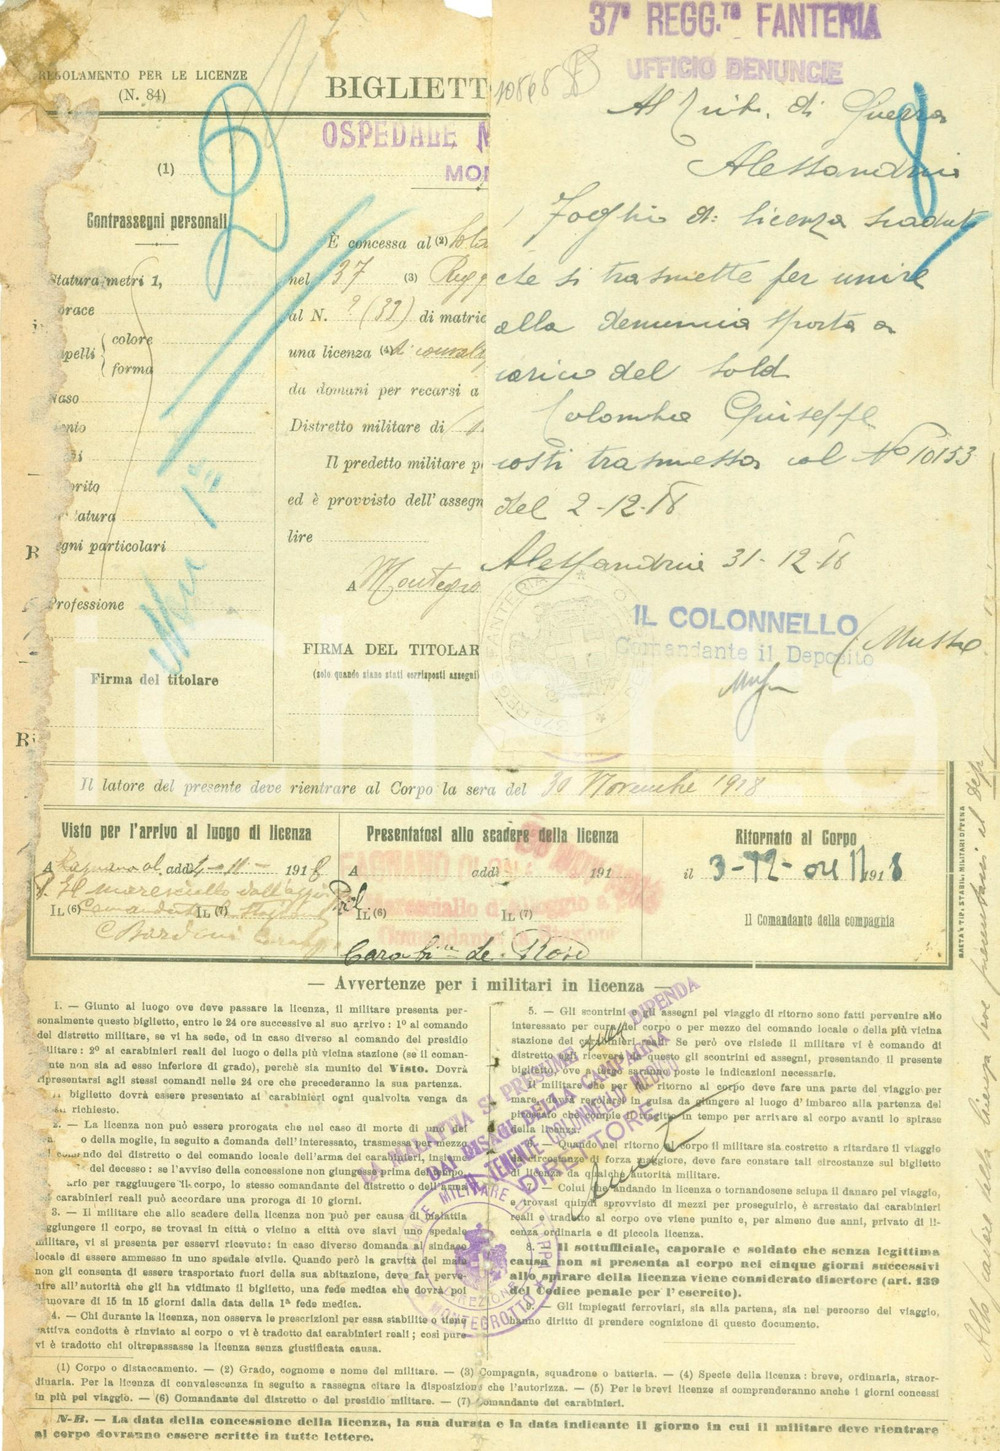 REGOLAMENTO PER LE LICENZE
(N. 84)
BIGLIETT
OSPEDALE M
MON
(1)
Contrassegni personali
Statura metri 1,
orace
apelli
colore
forma
Naso
ento
orito
latura
egni particolari
Professione
Firma del titolare
È concessa al (2) Solda
nel 37 (3) Regg
al N. ? (32) di matric
una licenza (4) di convale
da domani per recarsi a
Distretto militare di
Il predetto militare p
ed è provvisto dell' assegn
lire
A Montegro
FIRMA DEL TITOLAR
(solo quando siano stati corrisposti assegni
37° REGG.TO FANTERIA
UFFICIO DENUNCIE
Al Trib. di Guerra
Alessandria
Foglio di licenza scaduto
che si trasmette per unire
alla denuncia sporta a
carico del sold
Colombo Giuseppe
costì trasmessa col No 10153
del 2-12-18
Alessandria 31-12-18
IL COLONNELLO
Comandante il Deposito
Il latore del presente deve rientrare al Corpo la sera del 30 Novembre 1918
Visto per l'arrivo al luogo di licenza
A addì 1918
Il maresciallo d'alloggio
IL (6) Comandante IL (7)
Presentatosi allo scadere della licenza
A addì 191
IL (6) IL (7)
FAGNANO OLONA
Maresciallo d'alloggio
Comandante la Stazione
Ritornato al Corpo
il 3-12- ore 11 1918
Il Comandante della compagnia
GAETA TIP. STABIL. MILITARI DI PENA
— Avvertenze per i militari in licenza —
1. — Giunto al luogo ove deve passare la licenza, il militare presenta per-
sonalmente questo biglietto, entro le 24 ore successive al suo arrivo: 1° al comando
del distretto militare, se vi ha sede, od in caso diverso al comando del presidio
militare: 2° ai carabinieri reali del luogo o della più vicina stazione (se il coman-
ente non sia ad esso inferiore di grado), perchè sia munito del Visto. Dovrà
ripresentarsi agli stessi comandi nelle 24 ore che precederanno la sua partenza.
biglietto dovrà essere presentato ai carabinieri ogni qualvolta venga da
richiesto.
2. — La licenza non può essere prorogata che nel caso di morte di uno dei
o della moglie, in seguito a domanda dell'interessato, trasmessa per mezzo
comando del distretto o del comando locale dell'arma dei carabinieri, insieme
del decesso: se l'avviso della concessione non giungesse prima del tempo
ario per raggiungere il corpo, lo stesso comandante del distretto o dell'arma
carabinieri reali può accordare una proroga di 10 giorni.
3. — Il militare che allo scadere della licenza non può per causa di malattia
raggiungere il corpo, se trovasi in città o vicino a città ove siavi uno spedale
militare, vi si presenta per esservi ricevuto: in caso diverso domanda al sindaco
locale di essere ammesso in uno spedale civile. Quando però la gravità del male
non gli consenta di essere trasportato fuori della sua abitazione, deve far perve-
nire all'autorità che gli ha vidimato il biglietto, una fede medica che dovrà poi
rinnovare di 15 in 15 giorni dalla data della 1a fede medica.
4. — Chi durante la licenza, non osserva le prescrizioni per essa stabilite o tiene
cattiva condotta è rinviato al corpo o vi è tradotto dai carabinieri reali; così pure
vi è tradotto chi oltrepassasse la licenza senza giustificata causa.
5. — Gli scontrini e gli assegni pel viaggio di ritorno sono fatti pervenire allo
interessato per cura del corpo o per mezzo del comando locale o della più vicina
stazione dei carabinieri reali. Se però ove risiede il militare vi è comando di
distretto egli riceverà da questo gli scontrini ed assegni, presentando il presente
biglietto, ove a tergo saranno poste le indicazioni necessarie.
Il militare che per far ritorno al corpo deve fare una parte del viaggio per
mare, dovrà regolarsi in guisa da giungere al luogo d'imbarco alla partenza del
piroscafo che compie il tragitto in tempo per arrivare al corpo avanti lo spirare
della licenza.
6. — Quando nel ritorno al corpo il militare sia costretto a ritardare il viaggio
da circostanze di forza maggiore, deve fare constare tali circostanze sul biglietto
di licenza da qualche autorità militare.
7. — Colui che andando in licenza o tornandosene sciupa il danaro pel viaggio,
e trovasi quindi sprovvisto di mezzi per proseguirlo, è arrestato dai carabinieri
reali e tradotto al corpo ove viene punito e, per almeno due anni, privato di li-
cenza ordinaria e di piccola licenza.
8. Il sottufficiale, caporale e soldato che senza legittima
causa non si presenta al corpo nei cinque giorni successivi
allo spirare della licenza viene considerato disertore (art. 139
del Codice penale per l'esercito).
— Gli impiegati ferroviari, sia alla partenza, sia nel percorso del viaggio,
hanno diritto di prendere cognizione di questo documento.
LA MALATTIA SI PRESUME DIPENDA
DAI DISAGI DELLA CAMPAGNA
IL TENENTE COLONN. MEDICO
DIRETTORE
MILITARE DI TAPPA
DIREZIONE
MONTEGROTTO
(1) Corpo o distaccamento. — (2) Grado, cognome e nome del militare. — (3) Compagnia, squadrone o batteria. — (4) Specie della licenza: breve, ordinaria, straor-
dinaria. Per la licenza di convalescenza in seguito a rassegna citare la disposizione che l'autorizza. — (5) Per le brevi licenze si comprenderanno anche i giorni concessi
in più pel viaggio. — (6) Comandante del distretto o del presidio militare. — (7) Comandante dei carabinieri.
N-B. — La data della concessione della licenza, la sua durata e la data indicante il giorno in cui il militare deve rientrare
al corpo dovranno essere scritte in tutte lettere.